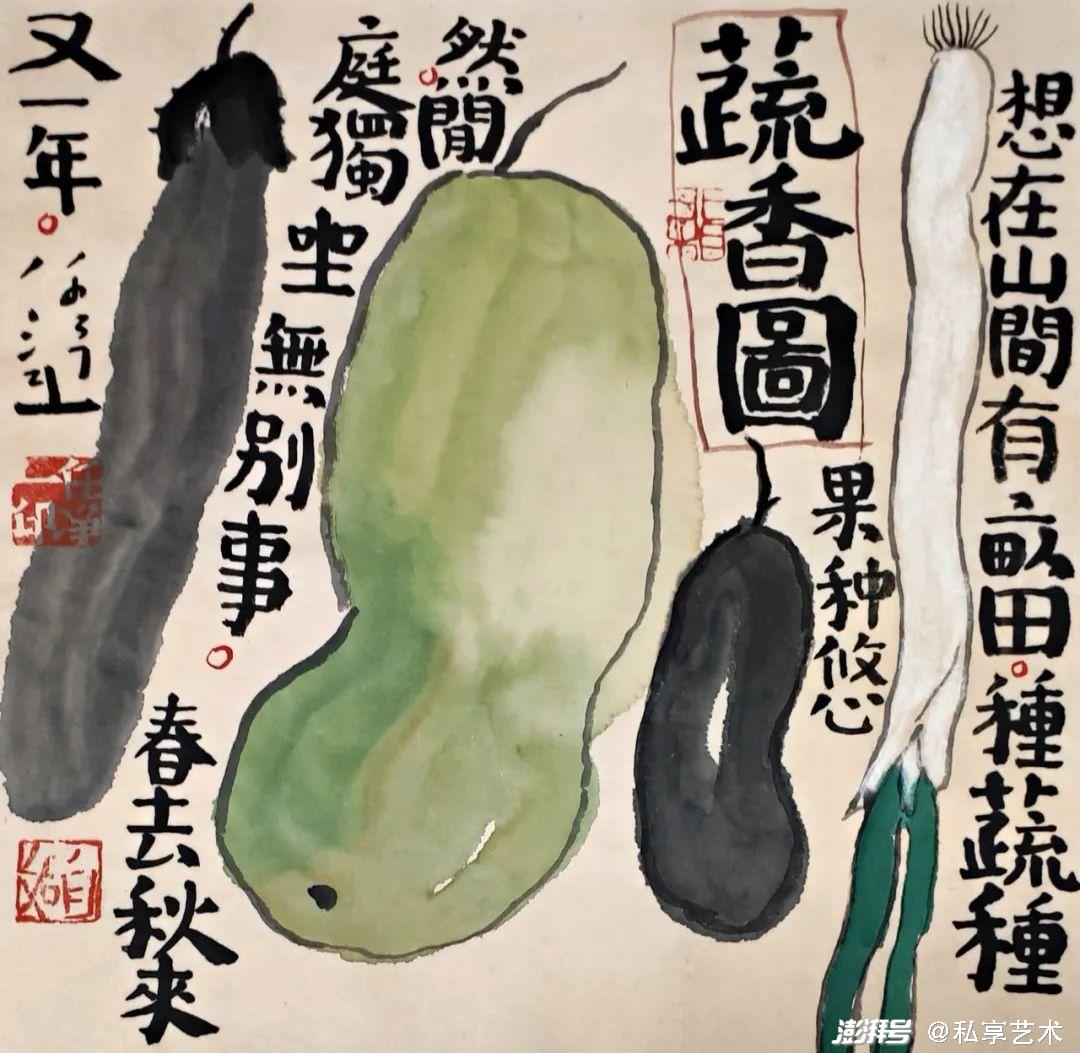 蔬香圖
想在山間有畝田。種蔬種
果种悠
然。閒
庭獨坐無別事。
春去秋來
又一年。
澎湃号 @私享艺术